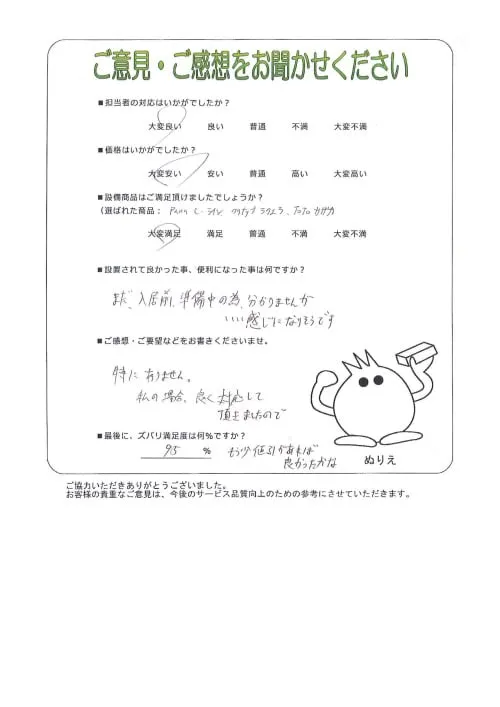 ご意見・ご感想をお聞かせください
■担当者の対応はいかがでしたか？
大変良い 良い 普通 不満 大変不満
■価格はいかがでしたか？
大変安い 安い 普通 高い 大変高い
■設備商品はご満足頂けましたでしょうか？
（選ばれた商品： Pana L-ライン クリナップ ラクエラ、TOTO
大変満足 満足 普通 不満 大変不満
■設置されて良かった事、便利になった事は何ですか？
まだ、入居前、準備中の為、分かりませんが
いい感じになりそうです
■ご感想・ご要望などをお書きくださいませ。
特にありません。
私の場合、良く対応して
頂きましたので
■最後に、ズバリ満足度は何％ですか？
95 % もう少し値引があれば
良かったかな
ぬりえ
ご協力いただきありがとうございました。
お客様の貴重なご意見は、今後のサービス品質向上のための参考にさせていただきます。